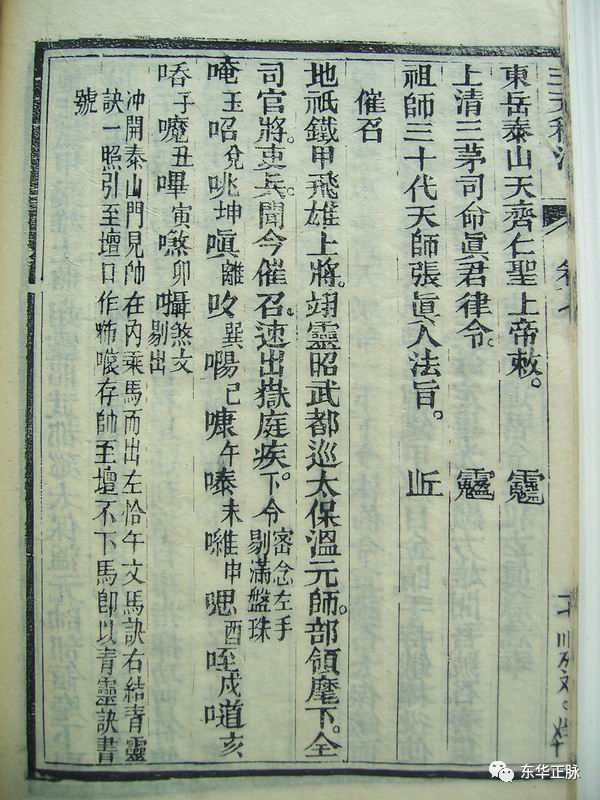 東岳泰山天齊仁聖上帝敕。
上清三茅司命眞君律令。
祖師三十代天師張眞人法旨。
催召
地祇鐵甲飛雄上將。翊靈昭武都巡太保溫元師。部領麾下。仝
司官將。吏兵。聞今催召。速出獄庭疾。下令密念左手剔滿盤珠
唵玉㕸兌咷坤嗔離呅巽喝己嗛午嗪未嘊申嗯酉咥戍噵亥
子魔丑嗶寅煞卯囁煞文剔出
冲開泰山門見帥在內乘馬而出左恰午文馬訣右結青靈
訣一照引至壇口作㖠㗋存帥至壇不下馬卽以青靈訣書
號
东华正脉